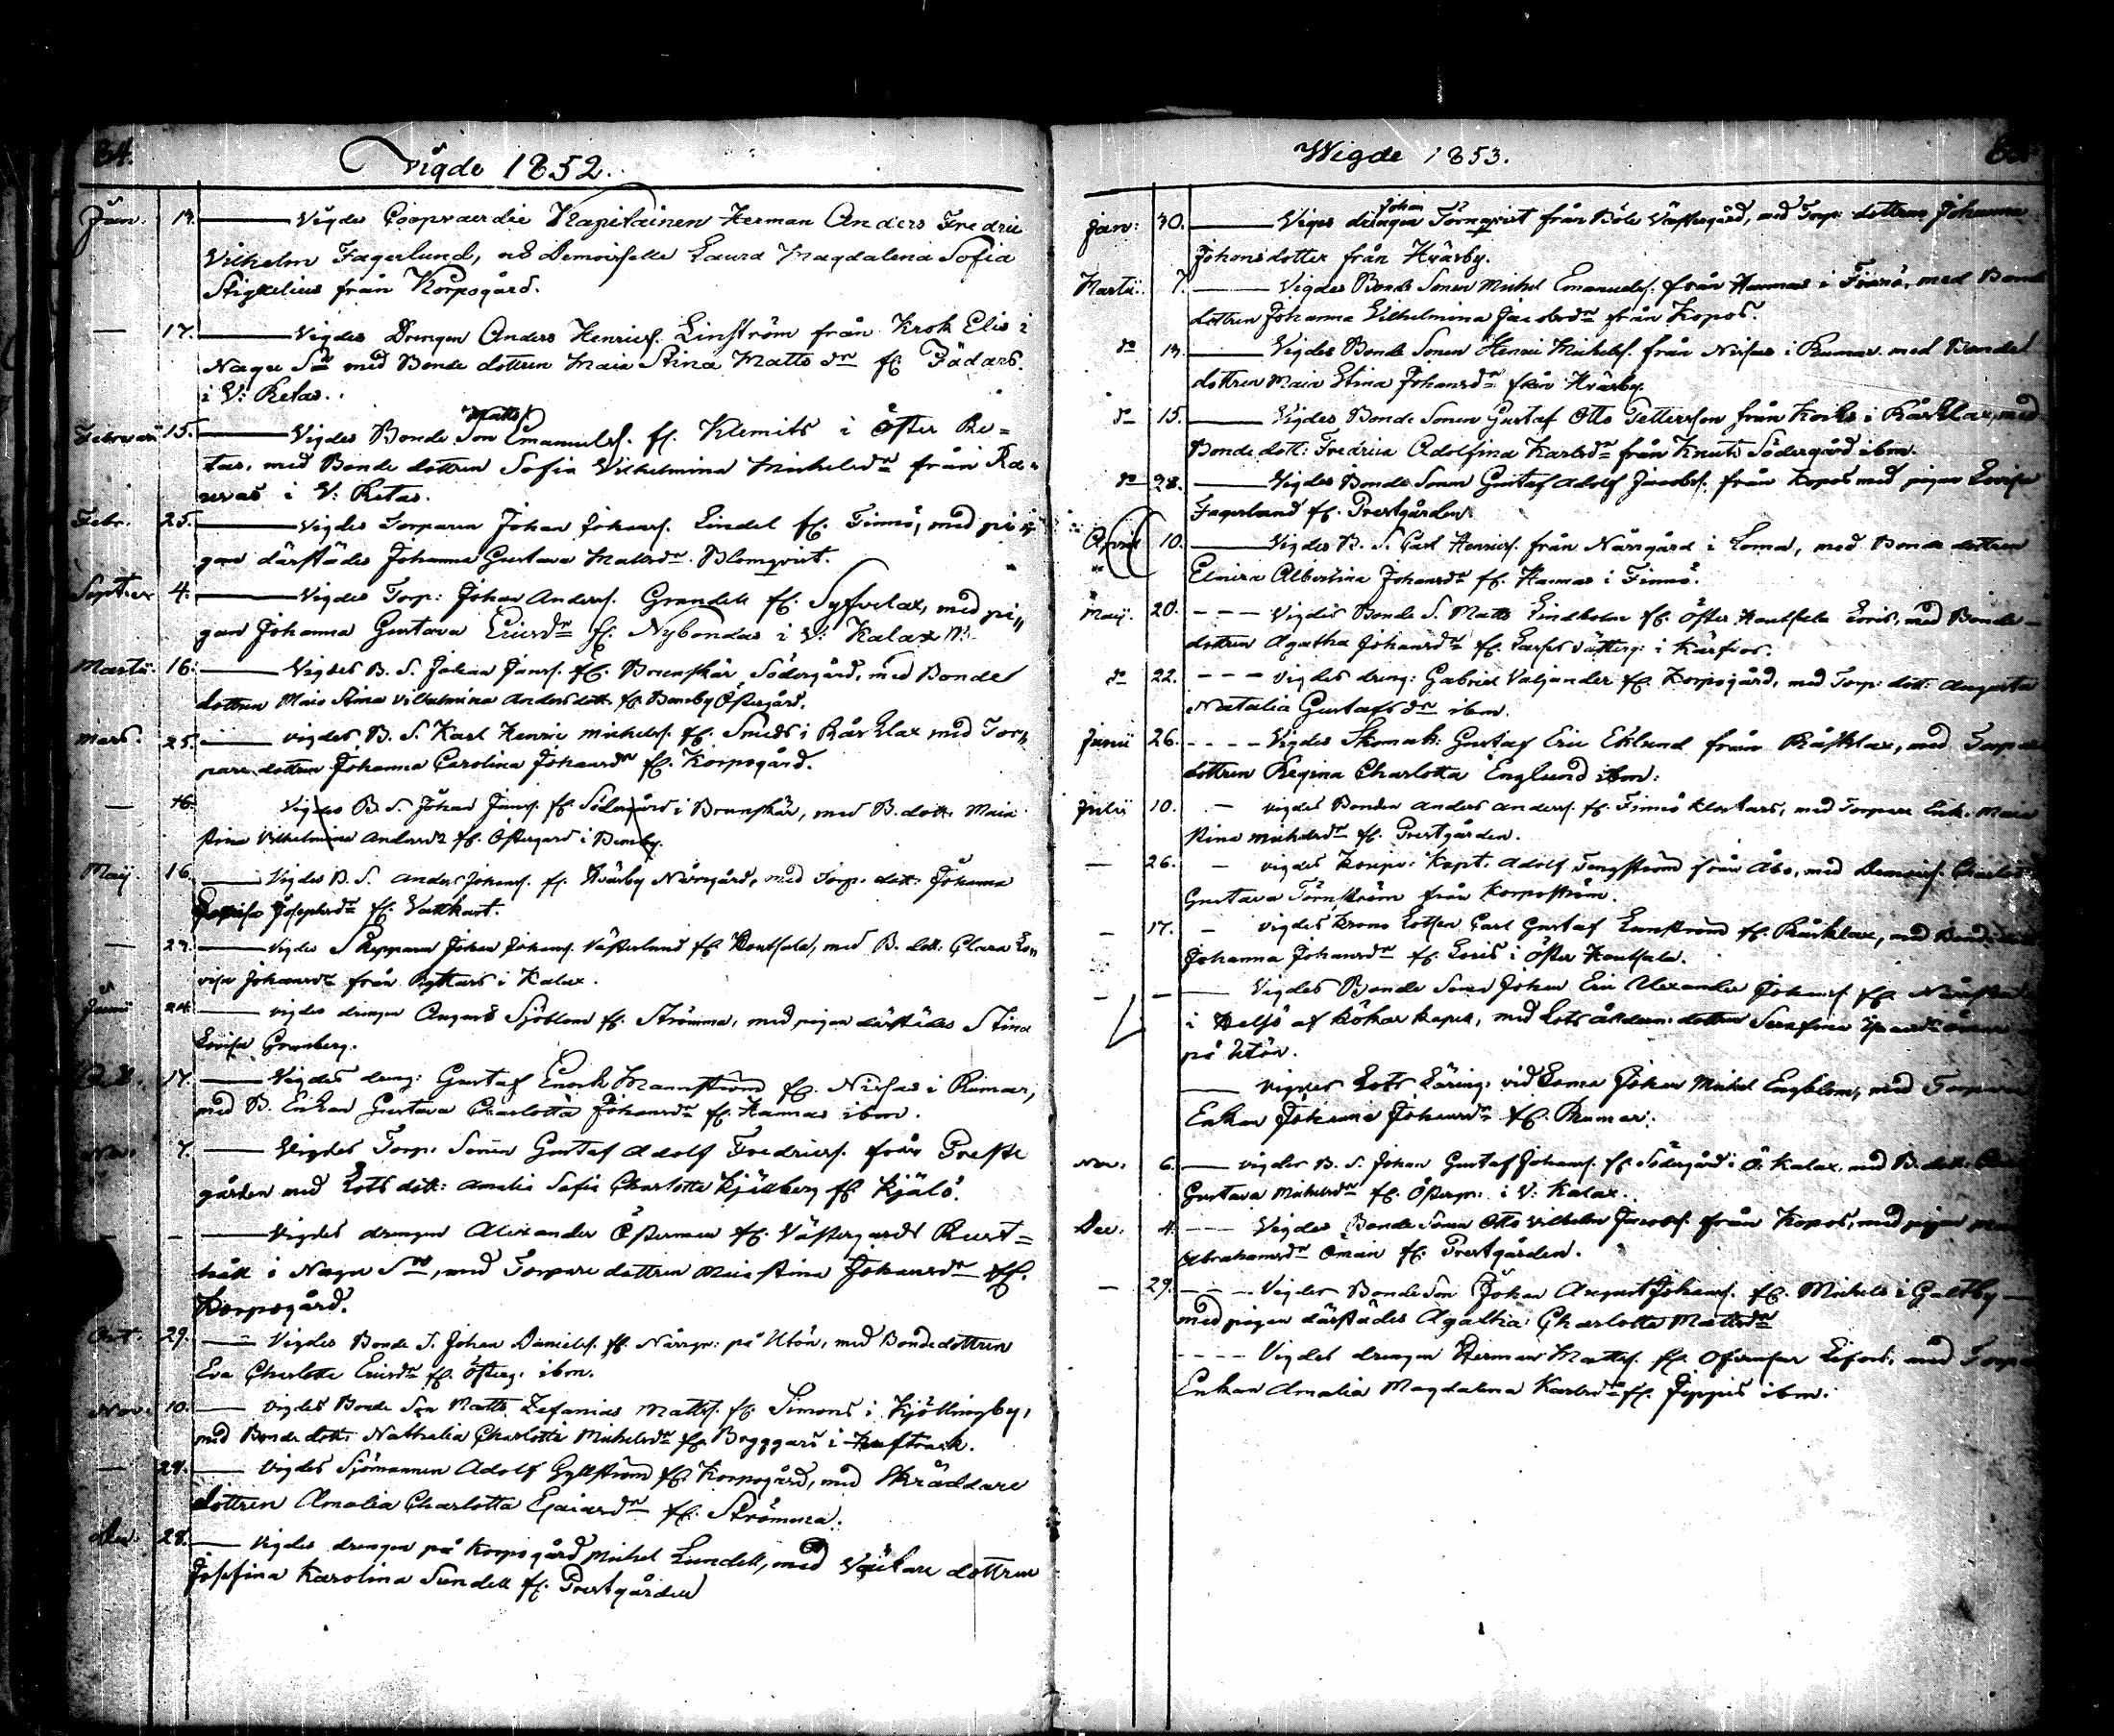 84.
Vigde 1852.
Jan. 13. Vigdes Coopvaerdie Kapitainen Herman Anders Fredric
Vilhelm Fagerlund, Demoiselle Laura Magdalena Sofia
Stigzelius från Korpogård.
— 17. Vigdes Drengen Anders Henrics. Linström från Krok Elis i
Nagu Sn med Bonde dottren Maia Stina Matts dr fr. Fädars
i V: Retas.
Februarii 15. Vigdes Bonde Son Matts Emanuels. fr. Klemets i Öster Re=
tas, med Bonde dottren Sofia Vilhelmina Michelsdr från Ra=
i V: Retas.
Febr. 25. Vigdes Torparen Johan Johans. Lindel fr. Finnö, med pi
gan därstädes Johanna Gustava Mattsdr Blomqvist.
4. Vigdes Torp: Johan Anders. Grandell fr. Syfvelax, med pi„
gan Johanna Gustava Ericsdr fr. Nybondas i V: Kalax
Martii 16. Vigdes B. S. Johan Jans. fr. Brunskär Södergård, med Bonde
dottren Maia Stina Vilhelmina Andersdott. fr. Bensby Östergård.
Mars. 25. vigdes B. S. Karl Henric Michels. fr. Smeds i Kårklax med Tor„
pare dottren Johanna Carolina Johansdr fr. Korpogård.
— 16. Vigdes B. S. Johan Jans. fr. Södergård i Brunskär, med B. dott. Maia
Stina Vilhelmina Andersdr fr. Östergård i Bensby.
Maij. 16. Vigdes B. S. Anders Johans. fr. Hväsby Norrgård, med Torp. dott. Johanna
Lovisa Josephsdr fr. Vattkast.
— Vigdes Skepparen Johan Johans. Västerlund fr. Houtsala, med B. dott. Clara Lo„
visa Johansdr från Rytkars i Kalax.
Junii 24. vigdes drengen August Sjöblom fr. Strömma, med pigan därstädes Stina
Lovisa Grönberg.
17. Vigdes dreng: Gustaf Enoch Mannström fr. Nissas i Rumar,
med B. Enkan Gustava Charlotta Johansdr fr. Hannas ibm.
7. Vigdes Torp. Sonen Gustaf Adolf Fredrics. från Preste
gården med Lots dott: Amalia Sofia Charlotta Kjällberg fr. Kjälö.
— — Vigdes drengen Alexander Österman fr. Västergårds Rust=
håll i Nagu Sn, med Torpare dottren Maia Stina Johansdr fr.
Korpogård.
Oct. 29. Vigdes Bonde S. Johan Daniels. fr. Norrgr: på Utön, med Bondedottren
Eva Charlotta Ericsdr fr. Österg. ibm.
Nov. 10. vigdes Bonde Son Matts Zefanias Matts. fr. Simons i Kjöllingby,
med Bonde dott: Nathalia Charlotta Michelsdr fr. Bryggars i
— 29. Vigdes Sjömannen Adolf Gyllström fr. Korpogård, med Skräddare
dottren Amalia Charlotta fr. Strömma.
28. Vigdes drengen på Korpogård Michel Lundell, med Väckare dottren
Josefina Karolina Sundell fr. Prestgården
Wigde 1853.
Jan: 30. Viges drängen Johan Törnqvist från Böle Västergård, med Torp. dottren Johanna
Johansdotter från Hväsby.
Martii. 7. Vigdes Bonde Sonen Michel Emanuels. från Hannas i Finnö, med Bonde
dottren Johanna Vilhelmina Jacobsdr från Kopos.
do 13. Vigdes Bonde Sonen Henric Michels. från Nissas i Rumar med Bonde
dottren Maia Stina Johansdr från Hväsby.
do 15. Vigdes Bonde Sonen Gustaf Otto Pettersson från Korks i Kårklax, med
Bonde dott: Fredrica Adolfina Karlsdr från Knuts Södergård ibm.
do 28. Vigdes Bonde Sonen Gustaf Adolf Jacobs. från Kopos med pigan Lovisa
Fagerlund fr. Prestgården.
April 10. Vigdes B. S. Carl Henrics. från Norrgård i Loma, med Bonde dottren
Elvira Albertina Johansdr fr. Hannas i Finnö.
Maij. 20. Vigdes Bonde S. Matts Lindholm fr. Öster Houtsala Loris, med Bonde
dottren Agatha Johansdr fr. Lasses Västerg: i Kärfvos.
do 22. vigdes dreng: Gabriel Valjander fr. Korpogård, med Torp: dott: Augusta
Natalia Gustafsdr ibm.
Junii 26. Vigdes Skomak: Gustaf Eric Eklund från Kårklax, med Torpare
dottren Regina Charlotta Englund ibm:
Julii 10. vigdes Bonden Anders Anders. fr. Finnö Klockars, med Torpare Enk. Maia
Stina Michelsdr fr. Prestgården.
— 26. vigdes Koopv: Kapt. Adolf Tengström från Åbo, med Demois.
Gustava Törnström från Korpoström.
— 17. vigdes Krono Lotsen Carl Gustaf Lanström fr. Kårklax, med Bonde
Johanna Johansdr fr. Loris i Öster Houtsala.
— — Vigdes Bonde Sonen Johan Eric Alexander Johans. fr.
i Helsö af Kökar kapell, med Lots ålderm. dottren Serafina
på Utön.
vigdes Lots Läring. vid Loma Johan Michel Engblom, med Torpare
Enkan Johanna Johansdr fr. Rumar.
Nov. 6. vigdes B. S. Johan Gustaf Johans. fr. Södergård i Ö. Kalax. med B. dott.
Gustava Michelsdr fr. Östergr: i V: Kalax.
Dec. 4. Vigdes Bonde Sonen Otto Vilhelm Jacobs. från Kopos, med pigan
Abrahamsdr Öman fr. Prestgården.
— 29. Vigdes Bonde Son Johan August Johans. fr. Michels i Galtby
med pigan därstädes Agatha Charlotta Mattsdr
Vigdes drengen Herman Matts. fr. Lifors. med Torpare
Enkan Amalia Magdalena Karlsdr fr. Jippis ibm.